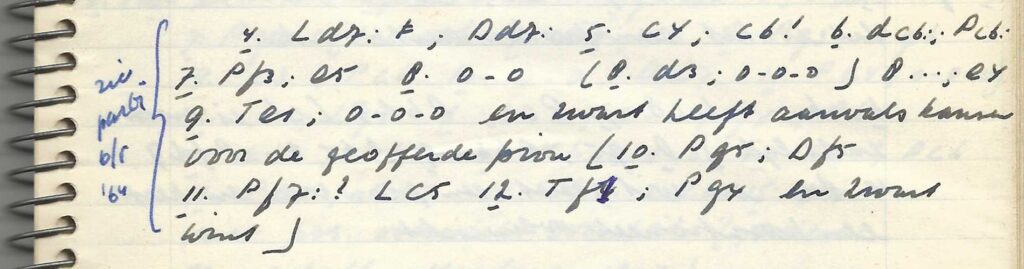 4. Ld7: †; Dd7: 5. c4; c6! 6. dc6:; Pc6:
7. Pf3; e5 8. 0-0 (8. d3; 0-0-0) 8...; e4
9. Te1; 0-0-0 en zwart heeft aanvalskansen
voor de geofferde pion (10. Pg5; Df5
11. Pf7:? Lc5 12. Tf1; Pg4 en zwart
wint)
zie
partij
6/5
'64